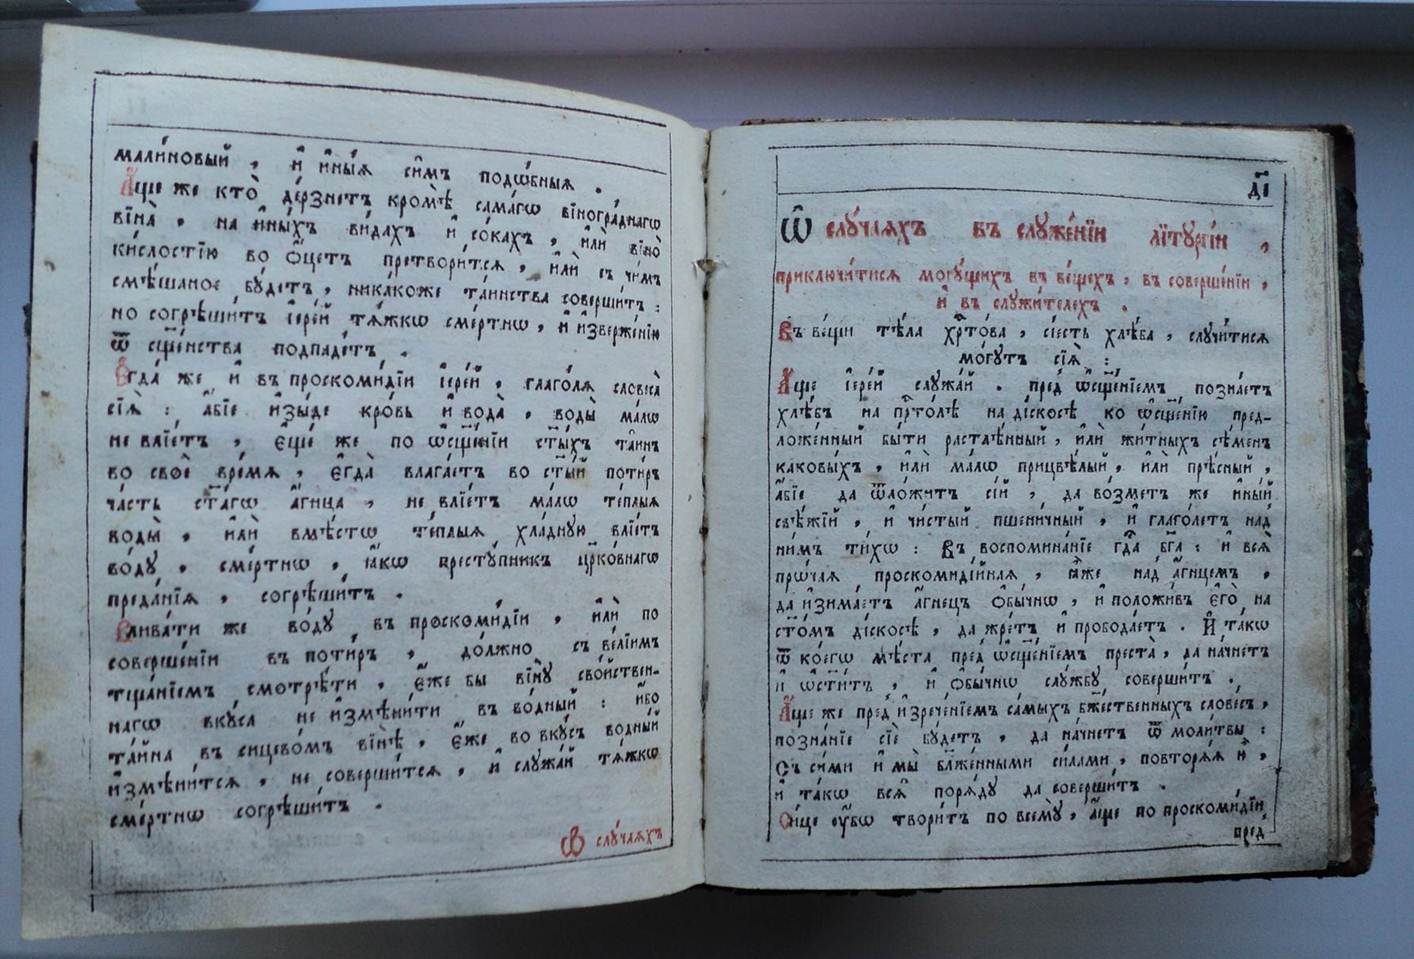 мали́новый , и҆ и҆ны́ѧ си̑мъ подѡ́бныѧ .
А҆́ще же кто̀ де́рзнетъ кромѣ̀ сама́гѡ вїногра́днагѡ
вїна̀ , на и҆́ныхъ ви́дахъ и҆ со́кахъ , и҆лѝ вїно̀
ки́слостїю во ѻ҆́цетъ претвори́тсѧ , и҆лѝ съ чи́мъ
смѣ́шаное бу́детъ , ника́коже та́инства соверши́тъ :
но согрѣши́тъ і҆ере́й тѧ́жкѡ сме́ртнѡ , и҆ и҆зверже́нїю
ѿ сщ҃е́нства подпаде́тъ .
Е҆гда́ же и҆ въ проскоми́дїи і҆ере́й , глаго́лѧ словеса̀
сїѧ̑ : а҆́бїе и҆зы́де кро́вь и҆ вода̀ , воды̀ ма́лѡ
не влїе́тъ , є҆ще́ же по ѡ҆сщ҃е́нїи ст҃ы́хъ та̑инъ
во своѐ вре́мѧ , є҆гда̀ влага́етъ во ст҃ы́й поти́ръ
ча́сть ст҃а́гѡ а҆́гнца , не влїе́тъ ма́лѡ те́плыѧ
воды̀ , и҆лѝ вмѣ́стѡ те́плыѧ хла́дную влїе́тъ
во́ду , сме́ртнѡ , ꙗ҆́кѡ престу́пникъ цр҃ко́внагѡ
преда́нїѧ , согрѣши́тъ .
Влива́ти же во́ду въ проскоми́дїи , и҆лѝ по
соверше́нїи въ поти́ръ , до́лжно съ ве́лїимъ
тща́нїемъ смотрѣ́ти , є҆́же бы вїну̀ сво́йствен-
нагѡ вку́са не и҆змѣни́ти въ во́дный : и҆́бо
та́йна въ сицево́мъ вїнѣ̀ , є҆́же во вку́съ во́дный
и҆змѣни́тсѧ , не соверши́тсѧ , и҆ служа́й тѧ́жкѡ
сме́ртнѡ согрѣши́тъ .
Ѽ слу́чаѧхъ
д҃і
Ѽ слу́чаѧхъ въ служе́нїи лїтургі́и ,
приключи́тисѧ могу́щихъ въ ве́щехъ , въ соверше́нїи ,
и҆ въ служи́телехъ .
Въ ве́щи тѣ́ла хрⷭ҇то́ва , сі́есть хлѣ́ба , случи́тисѧ
мо́гутъ сїѧ̑ :
А҆́ще і҆ере́й служа́й . пред̾ ѡ҆сщ҃е́нїемъ позна́етъ
хлѣ́бъ на прⷭ҇то́лѣ на ді́скосѣ ко ѡ҆сщ҃е́нїю пред-
ло́женный бы́ти растлѣ́нный , и҆лѝ жи́тныхъ сѣ́менъ
каковы́хъ , и҆лѝ ма́лѡ прицвѣ́лый , и҆лѝ прѣ́сный ,
а҆́бїе да ѿло́житъ сі́й , да во́зметъ же и҆́ный
свѣ́жїй , и҆ чи́стый пшени́чный , и҆ глаго́летъ над̾
ни́мъ ти́хѡ : Въ воспомина́нїе гдⷭ҇а бг҃а : и҆ всѧ̑
прѡ́чаѧ проскомиді́йнаѧ , ꙗ҆̀же над̾ а҆́гнцемъ ,
да и҆зима́етъ а҆́гнецъ ѻ҆бы́чнѡ , и҆ положи́въ є҆го̀ на
ст҃о́мъ ді́скосѣ , да жре́тъ и҆ прободае́тъ . И҆ та́кѡ
ѿ ко́егѡ мѣ́ста пред̾ ѡ҆сщ҃е́нїемъ преста̀ , да начне́тъ
и҆ ѡ҆ст҃и́тъ , и҆ ѻ҆бы́чнѡ слу́жбу соверши́тъ .
А҆́ще же пред̾ и҆зрече́нїемъ самы́хъ бж҃е́ственныхъ слове́съ ,
позна́нїе сїѐ бу́детъ , да начне́тъ ѿ моли́твы :
Съ си́ми и҆ мы̀ бл҃же́нными си́лами , повторѧ́ѧ и҆̀ ,
и҆ та́кѡ всѧ̑ по рѧ́ду да соверши́тъ .
Си́це ѹ҆́бѡ твори́тъ по всему̀ , а҆́ще по проскоми́дїи
пред̾